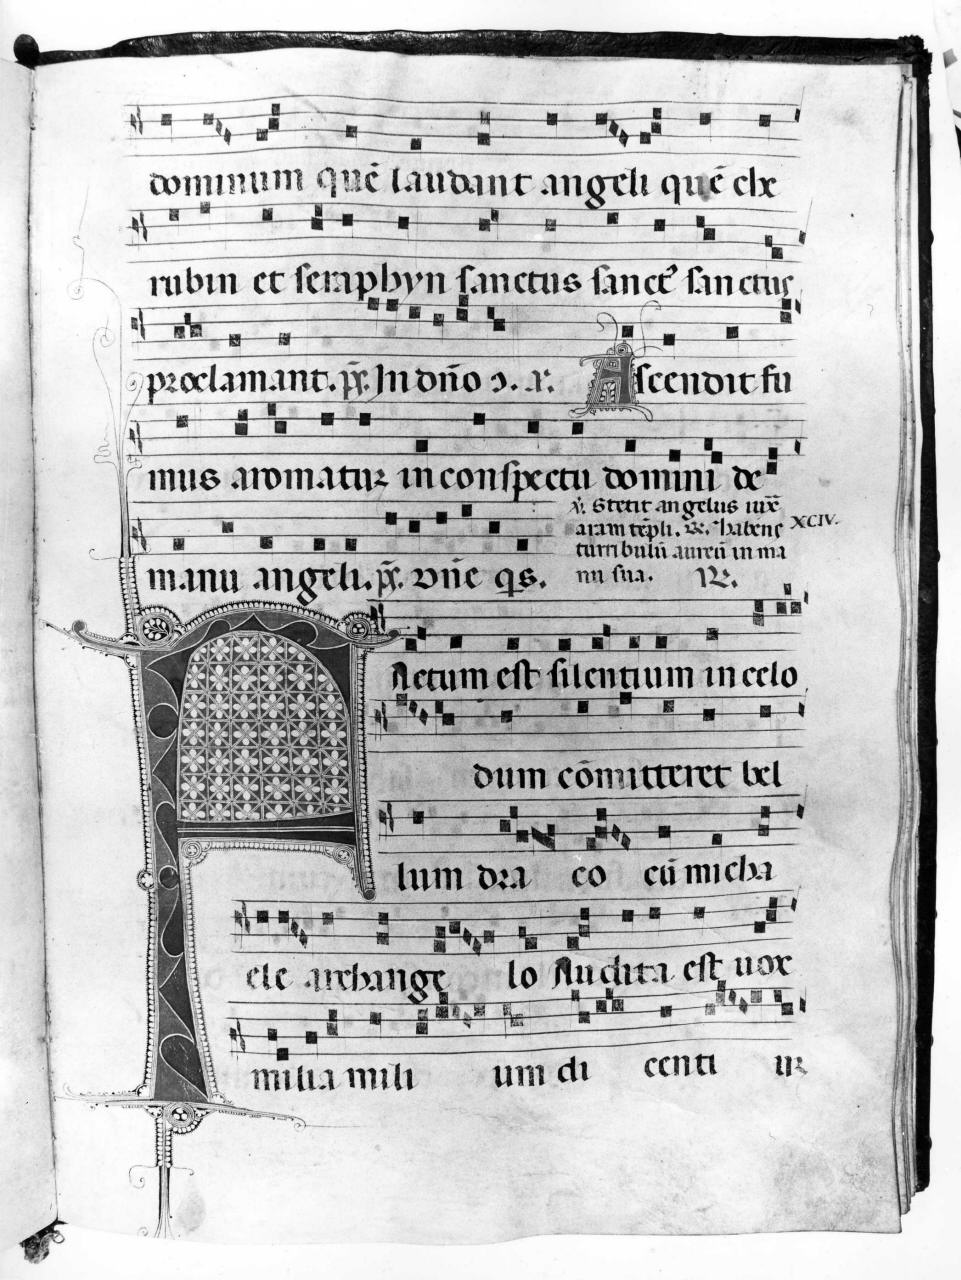 dominum quē laudant angeli quē che
rubin et seraphyn sanctus sanct᾽ sanctus
proclamant. p̄s. In dn̄o ɔ. a. Ascendit fu
mus aromatuꝝ in conspectu domini de
℣. Stetit angelus iuxᷓ
aram tēpli. ℟. habens XCIV.
turribulū aureū in ma
manu angeli. p̄s. Dn̄e qs.
nu sua. ℟.
Factum est silentium in celo
dum cōmitteret bel
lum dra co cū micha
ele archange lo Audita est uox
milia mili um di centi uꝝ